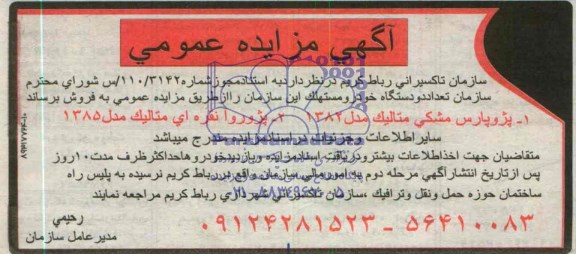 آگهي مزايده عمومي
سازمان تاكسيراني رباط كريم در نظر دارد به استناد مجوز شماره ۱۱۰/۳۱۴۲/س شوراي محترم
سازمان تعداد دو دستگاه خودرو مستهلك اين سازمان را از طريق مزايده عمومي به فروش برساند
۱ـ پژو پارس مشكي متاليك مدل ۱۳۸۷ ۲ـ پژو روا نقره اي متاليك مدل ۱۳۸۵
ساير اطلاعات و جزئيات در اسناد مزايده مندرج ميباشد
متقاضيان جهت اخذ اطلاعات بيشتر و دريافت اسناد مزايده و بازديد خودروها حداكثر ظرف مدت ۱۰ روز
پس از تاريخ انتشار آگهي مرحله دوم به امور مالي سازمان واقع در رباط كريم نرسيده به پليس راه
ساختمان حوزه حمل ونقل وترافيك ،سازمان تاكسيراني شهرداري رباط كريم مراجعه نمايند
۵۶۴۱۰۰۸۳ - ۰۹۱۲۴۲۸۱۵۲۳
رحيمي
مدير عامل سازمان